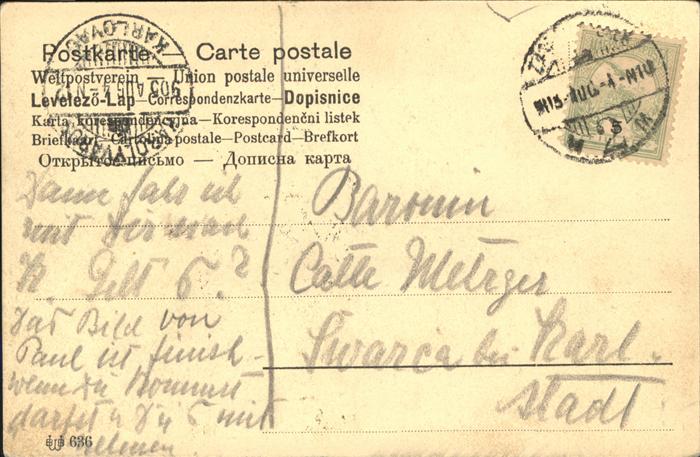 Postkarte. Carte postale
Weltpostverein — Union postale universelle
Levelező-Lap — Correspondenzkarte — Dopisnice
Karta korespondencyjna — Korespondenčni listek
Briefkaart — Cartolina postale — Postcard — Brefkort
Открытое письмо — Дописна карта
KARLOVAC
905 AUG 4 N12
KÁROLYVÁROS
915 AUG -4 N10
Dann fahr ich
mit Dir nach
K. Gilt 6?
Das Bild von
Paul ist
wenn du kommst
darfst Du 6 mit
nehmen.
Baronin
Catte Metzger
Švarča bei Karl-
stadt
636